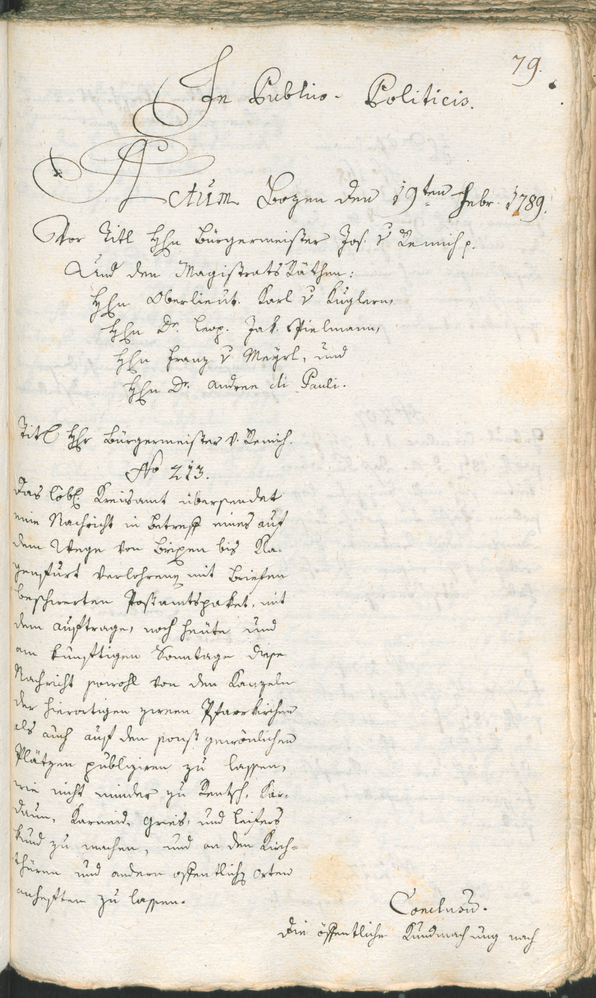 79.
In Publico-Politicis.
Actum Bozen den 19ten Febr. 1789.
Vor Titl Hhn Bürgermeister Jos. v Remich p.
Und den Magistrats Räthen:
Hhn Oberlieut. Karl v Kuglern,
Hhn Dr. Leop. Jak. Spielmann,
Hhn Franz v Meyrl, und
Hhn Dr. Andree di Pauli.
Titl Hhr Bürgermeister v. Remich.
No 213.
Das löbl. Kreisamt übersendet
eine Nachricht in Betreff eines auf
dem Wege von Brixen bis Kla-
genfurt verlohrenen mit Briefen
beschwerten Postamtspaket, mit
dem Auftrage, noch heute und
am künftigen Sonntage diese
Nachricht sowohl von den Kanzeln
der hierortigen zween Pfarrkirchen
als auch auf den sonst gewönlichen
Plätzen publiziren zu lassen,
wie nicht minder zu Rentsch, Kar-
daun, Karneid, Gries, und Leifers
kund zu machen, und an den Kirch-
thüren und andern öffentlichen Orten
anheften zu lassen.
Conclusum.
Die öffentliche Kundmachung nach